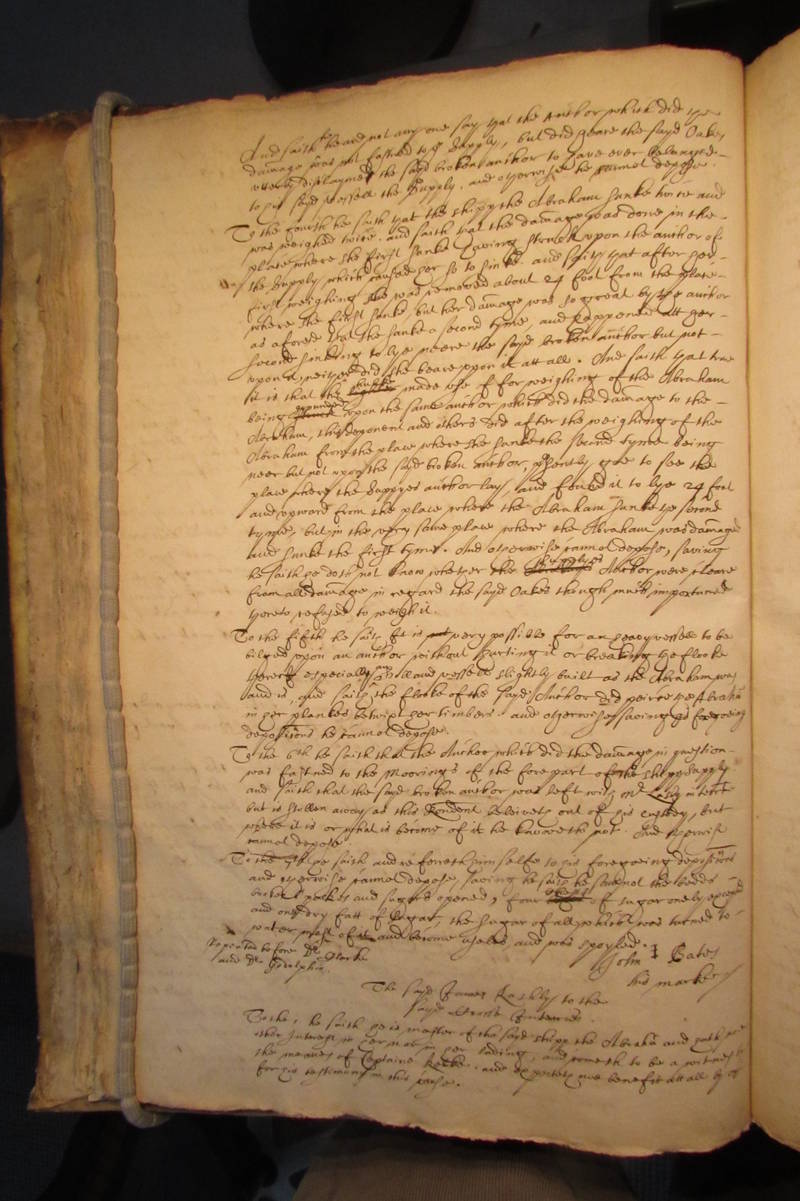 And saith he heard not any one say that the Anchor which did the
damage was not fastned to the Supply, but did heare the sayd Oakes
utterly disclaymed the sayd broken anchor to have ever belonged
to his sayd vessell the Supply. and otherwise he cannot depose.
To the fourth he saith that the shipp the Abraham sunke twice and
was weighed twice. and saith that the damage was done in the
place where she first sunke having struck upon the anchor of
the Supply which caused her so to sinke. and saith that after her
first weighing she was removed about 24 foot from the place
where she first sunke but her damage was so great by the anchor
as aforesd that she sunke a second tyme, and happened att her
second sinking to lye neere the sayd broken anchor but not
upon it, neither did she beare upon it att all. And saith that true
it is that the made use of for weighing of the Abraham
being upon the same anchor which did the damage to the
Abraham, this deponent and others did after the weighing of the
Abraham from the place where she sunke the second tyme being
neer but not upon the sayd broken anchor, presently goe to see the
place where the Supplyes anchor lay, and found it to lye 24 foot
and upward from the place where the Abraham sunke the second
tyme, but in the very same place where the Abraham was damaged
and sunke the first tyme. And otherwise cannot depose, saving
he saith he doth not know whether the Supplyes Anchor were cleare
from all damage in regard the sayd Oakes though much importuned
thereto refused to weigh it.
To the fifth he saith It is very possible for an heavy vessell to be
bilged upon an anchor without hurting it or breaking the flooke
thereof especially small and vessells slightly built as the Abraham was
and is, and saith the flooke of the sayd Anchor did peirce the Abraham
in her plankes betwixt her timbers. and otherwise saving his foregoeing
depositions he cannot depose.
To the 6th he saith that the Anchor which did the damage in question
was fastned to the moorings of the forepart of the shipp Supply
and saith that the sayd broken anchor was left with one
but is stollen away as this Rendent beleiveth out of his custody, but
where it is or what is become of it he knoweth not. And otherwise
cannot depose.
To the 7th he saith and referreth himselfe to his foregoeing depositions
and otherwise cannot depose, saving he saith he saw
and sugars opened, four of sugar onely
and one dry fatt of sugar, the sugar of all which was turned to
water most of it and become uselesse and was spoyled.
Repeated before Dr Clarke
and Dr Godolphin.
John Bates
his marke
The sayd James to the
sayd Interries.
To the he saith he is master of the sayd shipp the Abraham and hath
other Interest in her nor in her lading, and cometh to be a witnes
the meanes of Captaine and expecteth noe benefit att all by
for his testimony in this cause.